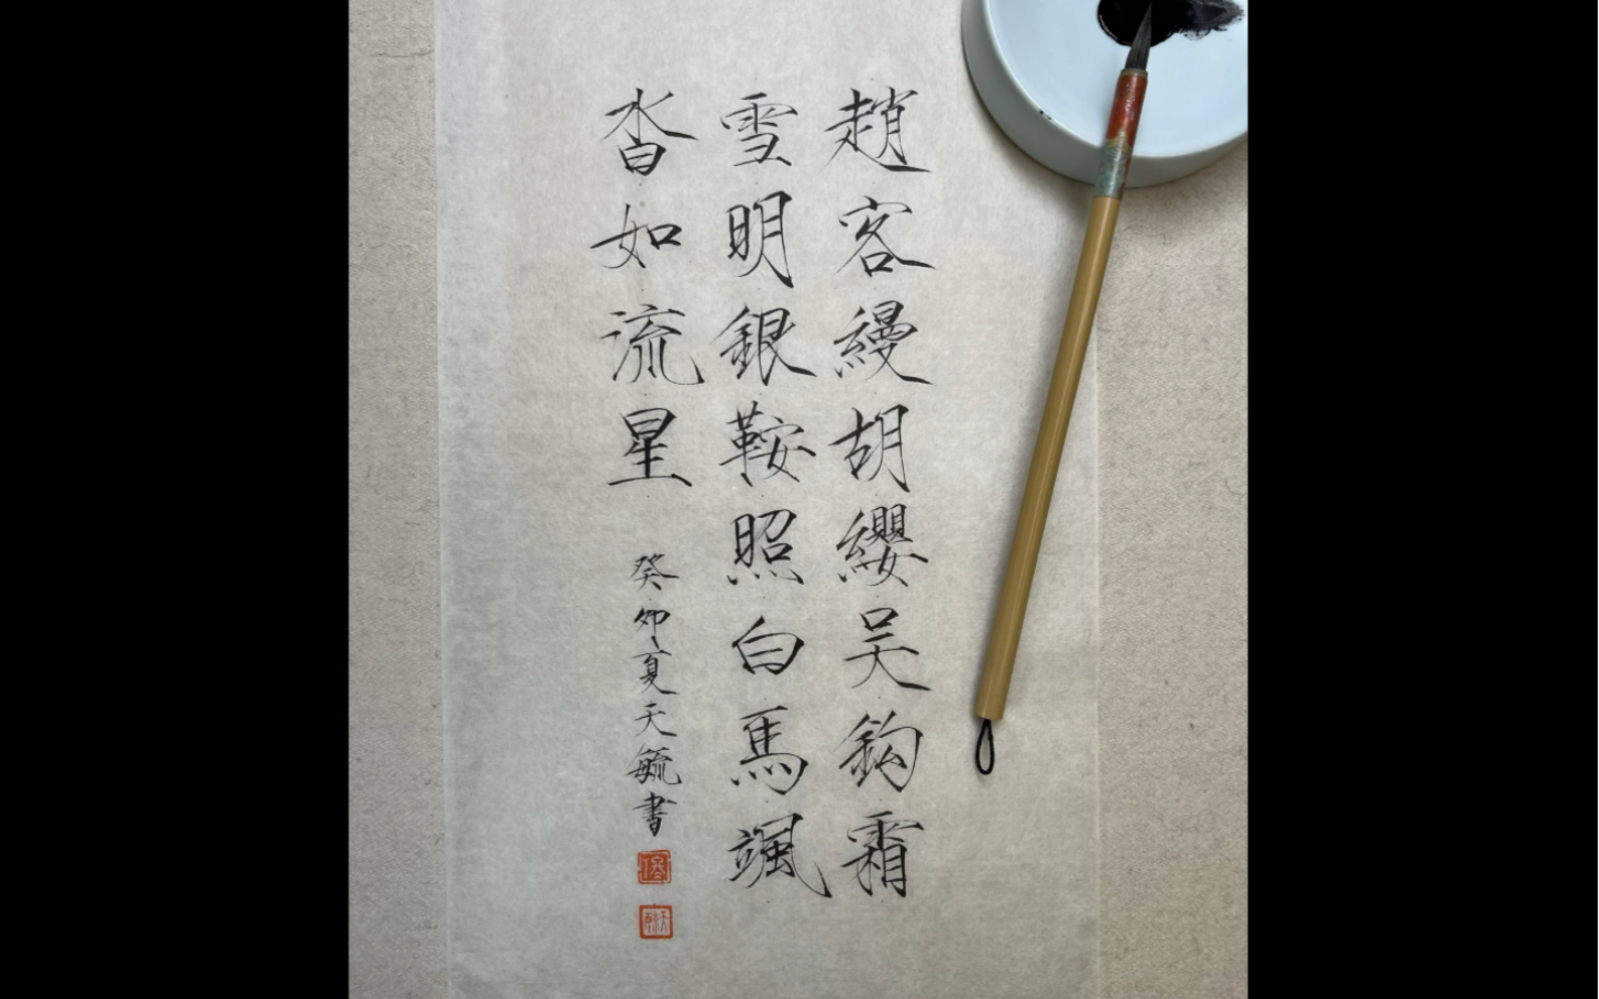 趙客縵胡纓吳鈎霜
雪明銀鞍照白馬颯
沓如流星
癸卯夏天毓書